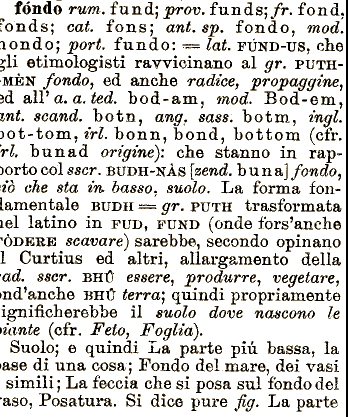 fóndo rum. fund; prov. funds; fr. fond,
fonds; cat. fons; ant. sp. fondo, mod.
hondo; port. fundo: = lat. FÚND-US, che
gli etimologisti ravvicinano al gr. PUTH-
MÈN fondo, ed anche radice, propaggine,
ed all' a. a. ted. bod-am, mod. Bod-em,
ant. scand. botn, ang. sass. botm, ingl.
bot-tom, irl. bonn, bond, bottom (cfr.
irl. bunad origine): che stanno in rap-
porto col sscr. BUDH-NÀS [zend. buna] fondo,
ciò che sta in basso, suolo. La forma fon-
damentale BUDH = gr. PUTH trasformata
nel latino in FUD, FUND (onde fors'anche
FÒDERE scavare) sarebbe, secondo opinano
il Curtius ed altri, allargamento della
rad. sscr. BHÛ essere, produrre, vegetare,
ond'anche BHÛ terra; quindi propriamente
significherebbe il suolo dove nascono le
piante (cfr. Feto, Foglia).
Suolo; e quindi La parte piú bassa, la
base di una cosa; Fondo del mare, dei vasi
e simili; La feccia che si posa sul fondo del
vaso, Posatura. Si dice pure fig. La parte